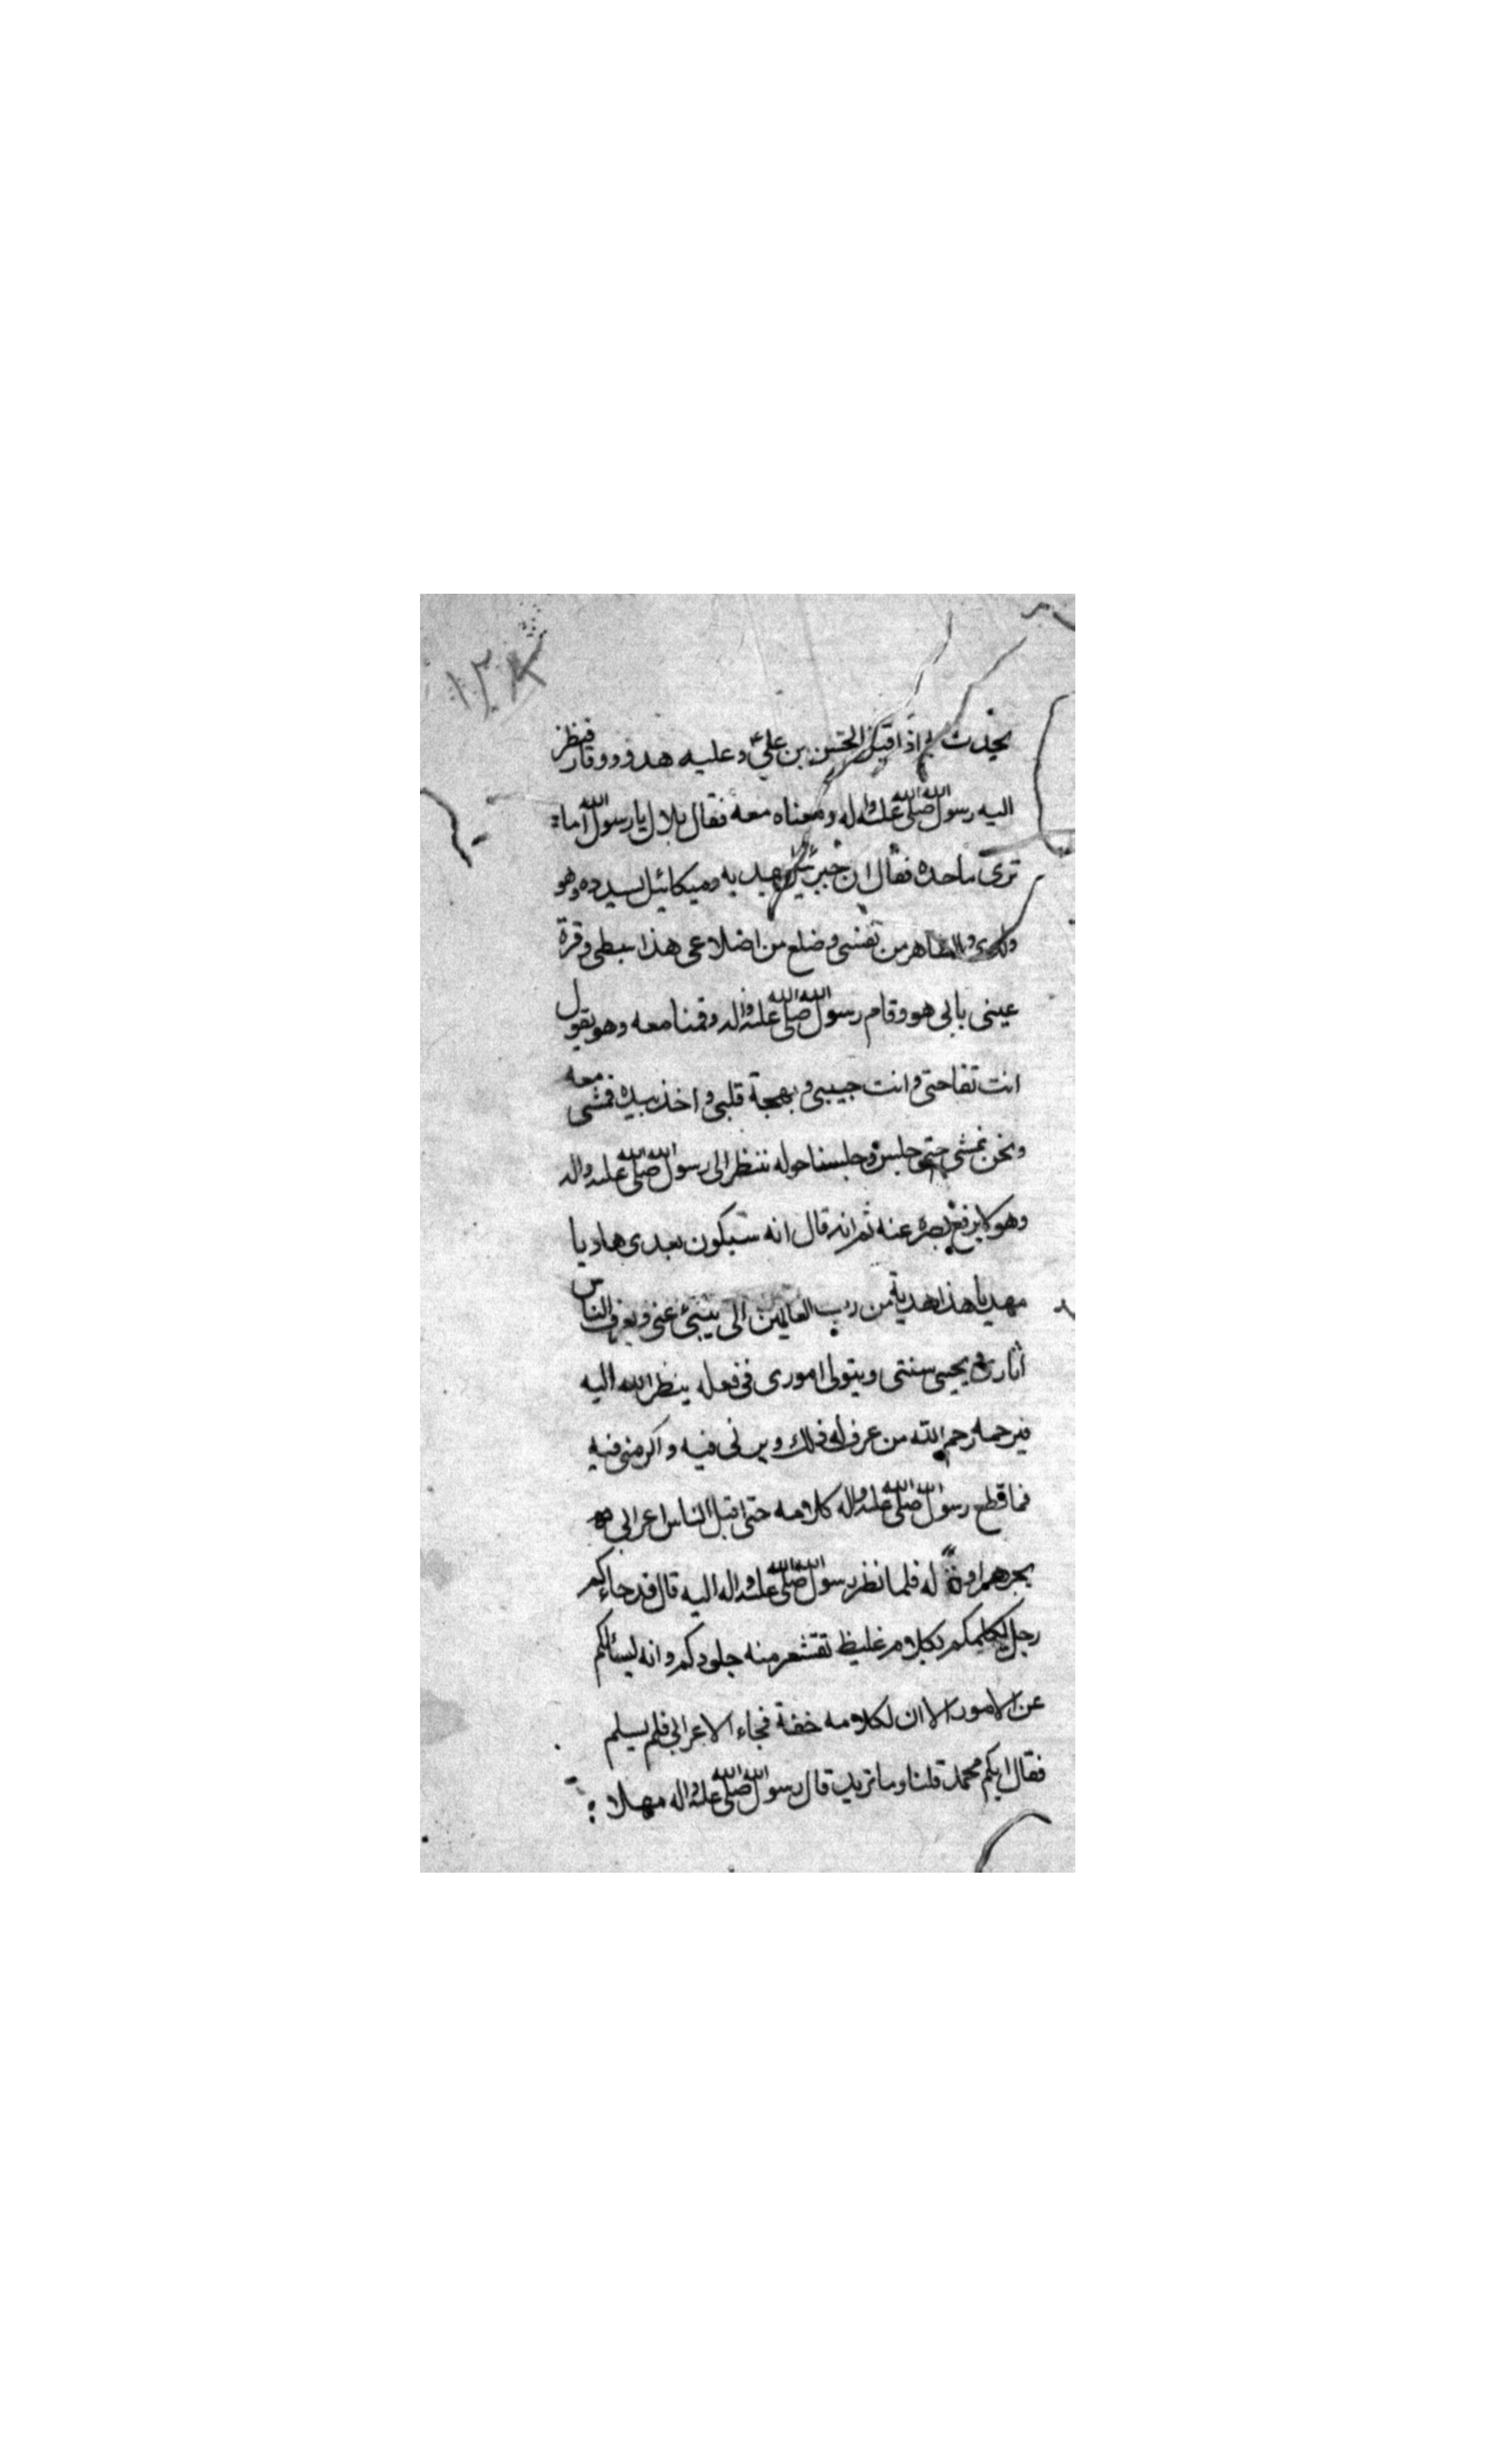 ١٣٨
يحدث اذ اقبل الحسن بن علي ع وعليه هدو ووقار فنظر
اليه رسول الله صلى الله عليه واله ومعناه معه فقال بلال يا رسول الله اما
ترى ما حده فقال ان جبرئيل يهديه وميكائيل يسدده وهو
ولدى والطاهر من نفسى وضلع من اضلاعى هذا سبطى وقرة
عينى بابى هو وقام رسول الله صلى الله عليه واله وقمنا معه وهو يقول
انت تفاحتى وانت حبيبى وبهجة قلبى واخذ بيده فمشى معه
ونحن نمشى حتى جلس وجلسنا حوله ننظر الى رسول الله صلى الله عليه واله
وهو لا يرفع بصره عنه ثم انه قال انه سيكون بعدى هاديا
مهديا هذا هدية من رب العالمين الى ينبئ عنى ويعرف الناس
اثارى ويحيى سنتى ويتولى امورى فى فعله ينظر الله اليه
فيرحمه رحم الله من عرف له ذلك وبرنى فيه واكرمنى فيه
فما قطع رسول الله صلى الله عليه واله كلامه حتى اقبل الناس اعرابى
يجر هراوة له فلما نظر رسول الله صلى الله عليه واله اليه قال قد جاءكم
رجل يكلمكم بكلام غليظ تقشعر منه جلودكم وانه ليسئلكم
عن الامور الا ان لكلامه خفة فجاء الاعرابى فلم يسلم
فقال ايكم محمد قلنا وما تريد قال رسول الله صلى الله عليه واله مهلا